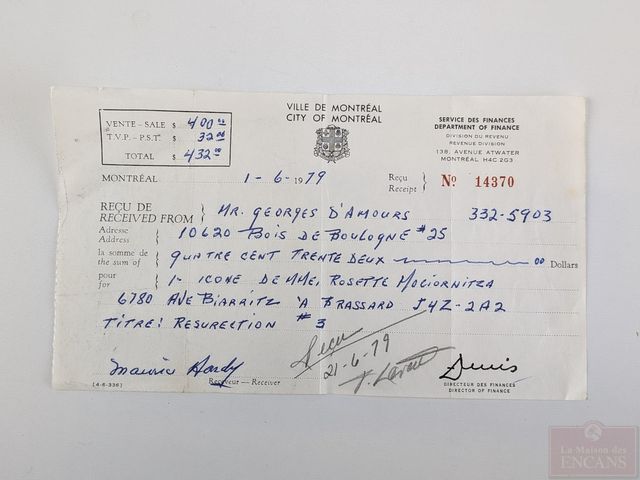 VILLE DE MONTRÉAL
CITY OF MONTRÉAL
VENTE – SALE $ 400 00
T.V.P. – P.S.T. $ 32 00
TOTAL $ 432 00
SERVICE DES FINANCES
DEPARTMENT OF FINANCE
DIVISION DU REVENU
REVENUE DIVISION
138, AVENUE ATWATER
MONTRÉAL H4C 2G3
MONTRÉAL 1-6-1979 Reçu
Receipt Nº 14370
REÇU DE
RECEIVED FROM MR. GEORGES D'AMOURS 332-5903
Adresse
Address 10620 BOIS DE BOULOGNE #25
la somme de
the sum of QUATRE CENT TRENTE DEUX 00 Dollars
pour
for 1- ICONE DE MME, ROSETTE MOCIORNITZA
6780 AVE BIARRITZ À BRASSARD J4Z-2A2
TITRE: RESURECTION #3
Reçu
21-6-79
Maurice Hardy
Receveur — Receiver
[4-6-336]
DIRECTEUR DES FINANCES
DIRECTOR OF FINANCE
La Maison des
ENCANS